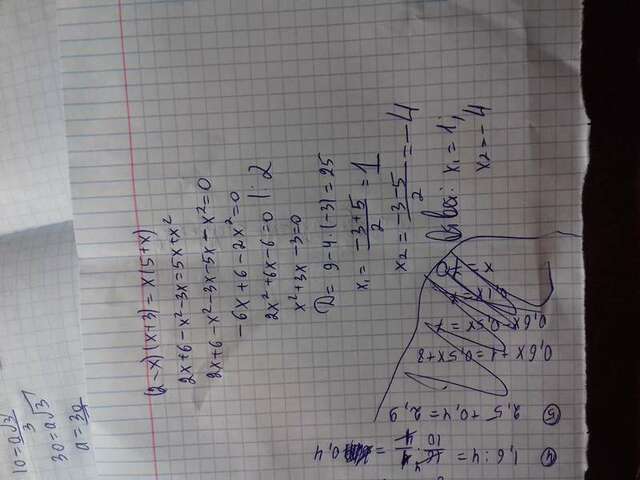 10 = a√3/3
30 = a√3
a = 30
(2-x)(x+3) = x(5+x)
2x+6-x²-3x=5x+x²
2x+6-x²-3x-5x-x²=0
-6x+6-2x²=0
2x²+6x-6=0 |:2
x²+3x-3=0
D= 9-4·(-3) = 25
x₁ = (-3+5)/2 = 1
x₂ = (-3-5)/2 = -4
Ответ: x₁ = 1;
x₂ = -4
④ 1,6 : 4 = 0,4
⑤ 2,5 + 0,4 = 2,9
0,6x+1=0,5x+8